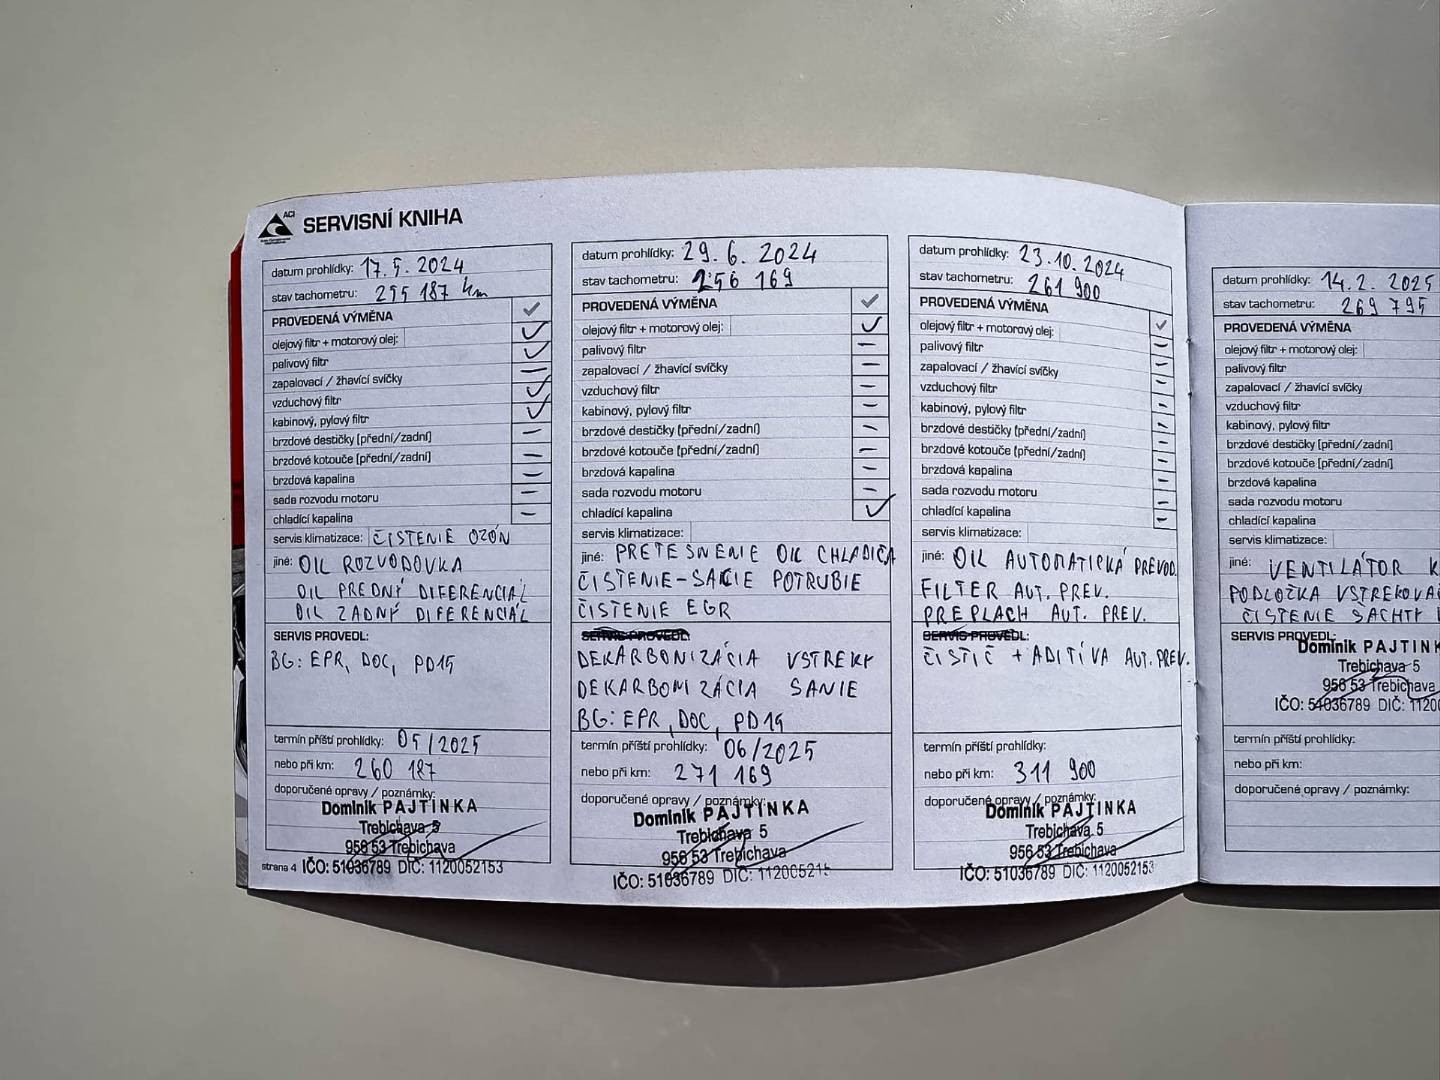 ACI
SERVISNÍ KNIHA
datum prohlídky: 17. 5. 2024
stav tachometru: 255 187 km
PROVEDENÁ VÝMĚNA ✓
olejový filtr + motorový olej: ✓
palivový filtr ✓
zapalovací / žhavící svíčky –
vzduchový filtr ✓
kabinový, pylový filtr ✓
brzdové destičky (přední/zadní) –
brzdové kotouče (přední/zadní) –
brzdová kapalina –
sada rozvodu motoru –
chladící kapalina –
servis klimatizace: ČISTENIE OZÓN
jiné: OIL ROZVODOVKA
OIL PREDNÝ DIFERENCIÁL
OIL ZADNÝ DIFERENCIÁL
SERVIS PROVEDL:
BG: EPR, DOC, PD19
termín příští prohlídky: 05/2025
nebo při km: 260 187
doporučené opravy / poznámky:
Dominik PAJTINKA
Trebichava 5
956 53 Trebichava
strana 4 IČO: 51036789 DIČ: 1120052153
datum prohlídky: 29. 6. 2024
stav tachometru: 256 169
PROVEDENÁ VÝMĚNA ✓
olejový filtr + motorový olej: ✓
palivový filtr –
zapalovací / žhavící svíčky –
vzduchový filtr –
kabinový, pylový filtr –
brzdové destičky (přední/zadní) –
brzdové kotouče (přední/zadní) –
brzdová kapalina –
sada rozvodu motoru –
chladící kapalina ✓
servis klimatizace:
jiné: PRETESNENIE OIL CHLADIČA
ČISTENIE-SACIE POTRUBIE
ČISTENIE EGR
SERVIS PROVEDL:
DEKARBONIZÁCIA VSTREKY
DEKARBONIZÁCIA SANIE
BG: EPR, DOC, PD19
termín příští prohlídky: 06/2025
nebo při km: 271 169
doporučené opravy / poznámky:
Dominik PAJTINKA
Trebichava 5
956 53 Trebichava
IČO: 51036789 DIČ: 112005215
datum prohlídky: 23.10.2024
stav tachometru: 261 900
PROVEDENÁ VÝMĚNA ✓
olejový filtr + motorový olej: –
palivový filtr –
zapalovací / žhavící svíčky –
vzduchový filtr –
kabinový, pylový filtr –
brzdové destičky (přední/zadní) –
brzdové kotouče (přední/zadní) –
brzdová kapalina –
sada rozvodu motoru –
chladící kapalina –
servis klimatizace:
jiné: OIL AUTOMATICKÁ PREVOD.
FILTER AUT. PREV.
PREPLACH AUT. PREV.
SERVIS PROVEDL:
ČISTIČ + ADITÍVA AUT. PREV.
termín příští prohlídky:
nebo při km: 311 900
doporučené opravy / poznámky:
Dominik PAJTINKA
Trebichava 5
956 53 Trebichava
IČO: 51036789 DIČ: 1120052153
datum prohlídky: 14. 2. 2025
stav tachometru: 269 795
PROVEDENÁ VÝMĚNA
olejový filtr + motorový olej:
palivový filtr
zapalovací / žhavící svíčky
vzduchový filtr
kabinový, pylový filtr
brzdové destičky (přední/zadní)
brzdové kotouče (přední/zadní)
brzdová kapalina
sada rozvodu motoru
chladící kapalina
servis klimatizace:
jiné: VENTILÁTOR K
PODLOŽKA VSTREKOVAČ
ČISTENIE ŠACHTY
SERVIS PROVEDL:
Dominik PAJTINK
Trebichava 5
956 53 Trebichava
IČO: 51036789 DIČ: 11200
termín příští prohlídky:
nebo při km:
doporučené opravy / poznámky: